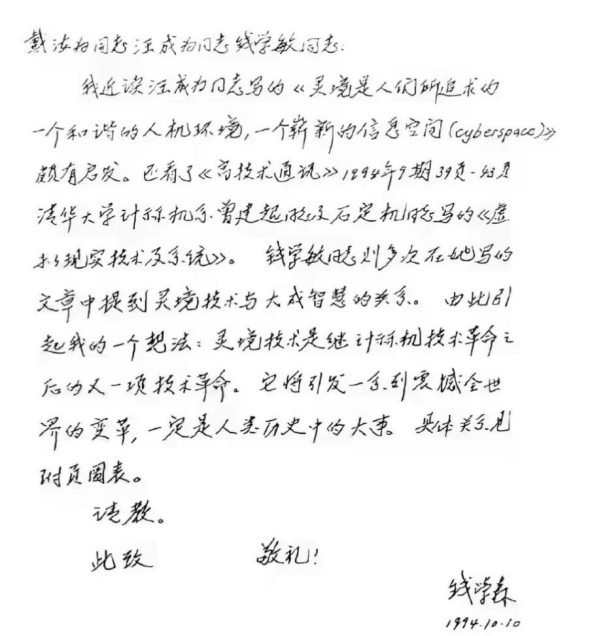 戴汝为同志汪成为同志钱学敏同志:
我近读汪成为同志写的《灵境是人们所追求的
一个和谐的人机环境,一个崭新的信息空间(cyberspace)》
颇有启发。还看了《高技术通讯》1994年9期39页-43页
清华大学计祘机系曾建超同志及石定机同志写的《虚
拟现实技术及系统》。钱学敏同志则多次在她写的
文章中提到灵境技术与大成智慧的关系。由此引
起我的一个想法:灵境技术是继计祘机技术革命之
后的又一项技术革命。它将引发一系列震撼全世
界的变革,一定是人类历史中的大事。具体关系见
附页图表。
请教。
此致 敬礼!
钱学森
1994.10.10